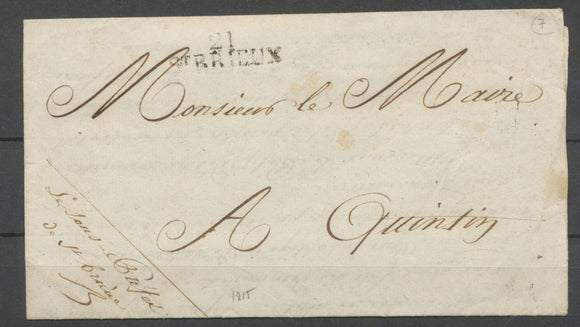 7
21
ST BRIEUX
Monsieur le Maire
A Quintin
Le Sous
de St brieuc
1815